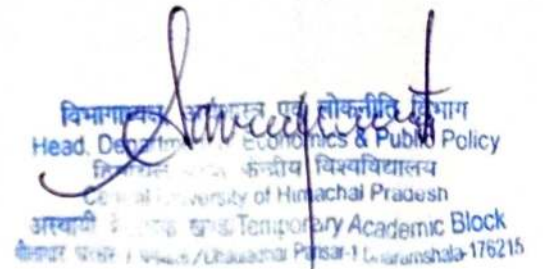 विभागाध्यक्ष, अर्थशास्त्र एवं लोकनीति विभाग
Head, Department Economics & Public Policy
केन्द्रीय विश्वविद्यालय
Central University of Himachal Pradesh
अस्थायी खण्ड Temporary Academic Block
Dhauladhar Parisar-1 Dharamshala-176215